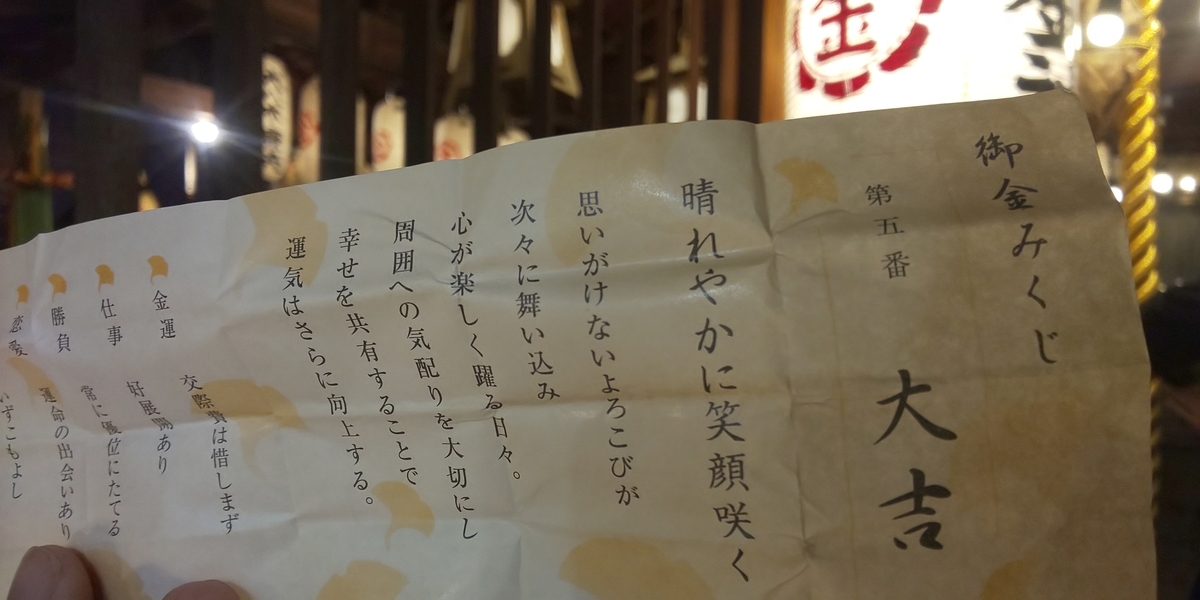 金
御金みくじ
第五番 大吉
晴れやかに笑顔咲く
思いがけないよろこびが
次々に舞い込み
心が楽しく躍る日々。
周囲への気配りを大切にし
幸せを共有することで
運気はさらに向上する。
金運 交際費は惜しまず
仕事 好展開あり
勝負 常に優位にたてる
恋愛 運命の出会いあり
いずこもよし